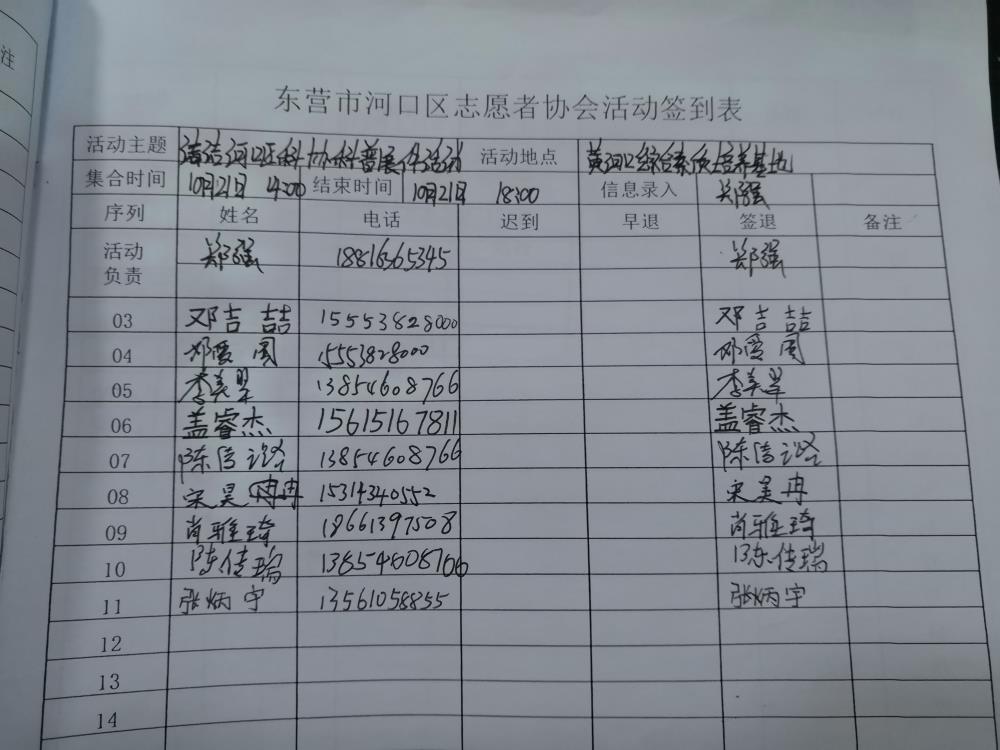 注
东营市河口区志愿者协会活动签到表
活动主题 清洁河口区科协科普展 活动地点 黄河口综合素质培养基地
集合时间 10月21日 14:00 结束时间 10月21日 18:00 信息录入 郑强
序列 姓名 电话 迟到 早退 签退 备注
活动负责 郑强 18816365345 郑强
03 邓吉喆 15553828000 邓吉喆
04 邓爱周 15553828000 邓爱周
05 李美翠 13854608766 李美翠
06 盖睿杰 15615167811 盖睿杰
07 陈信 13854608766 陈信
08 宋昊冉 15314340552 宋昊冉
09 肖雅琦 18661397508 肖雅琦
10 陈佳瑞 13854608766 陈佳瑞
11 张炳宇 13561058855 张炳宇
12
13
14